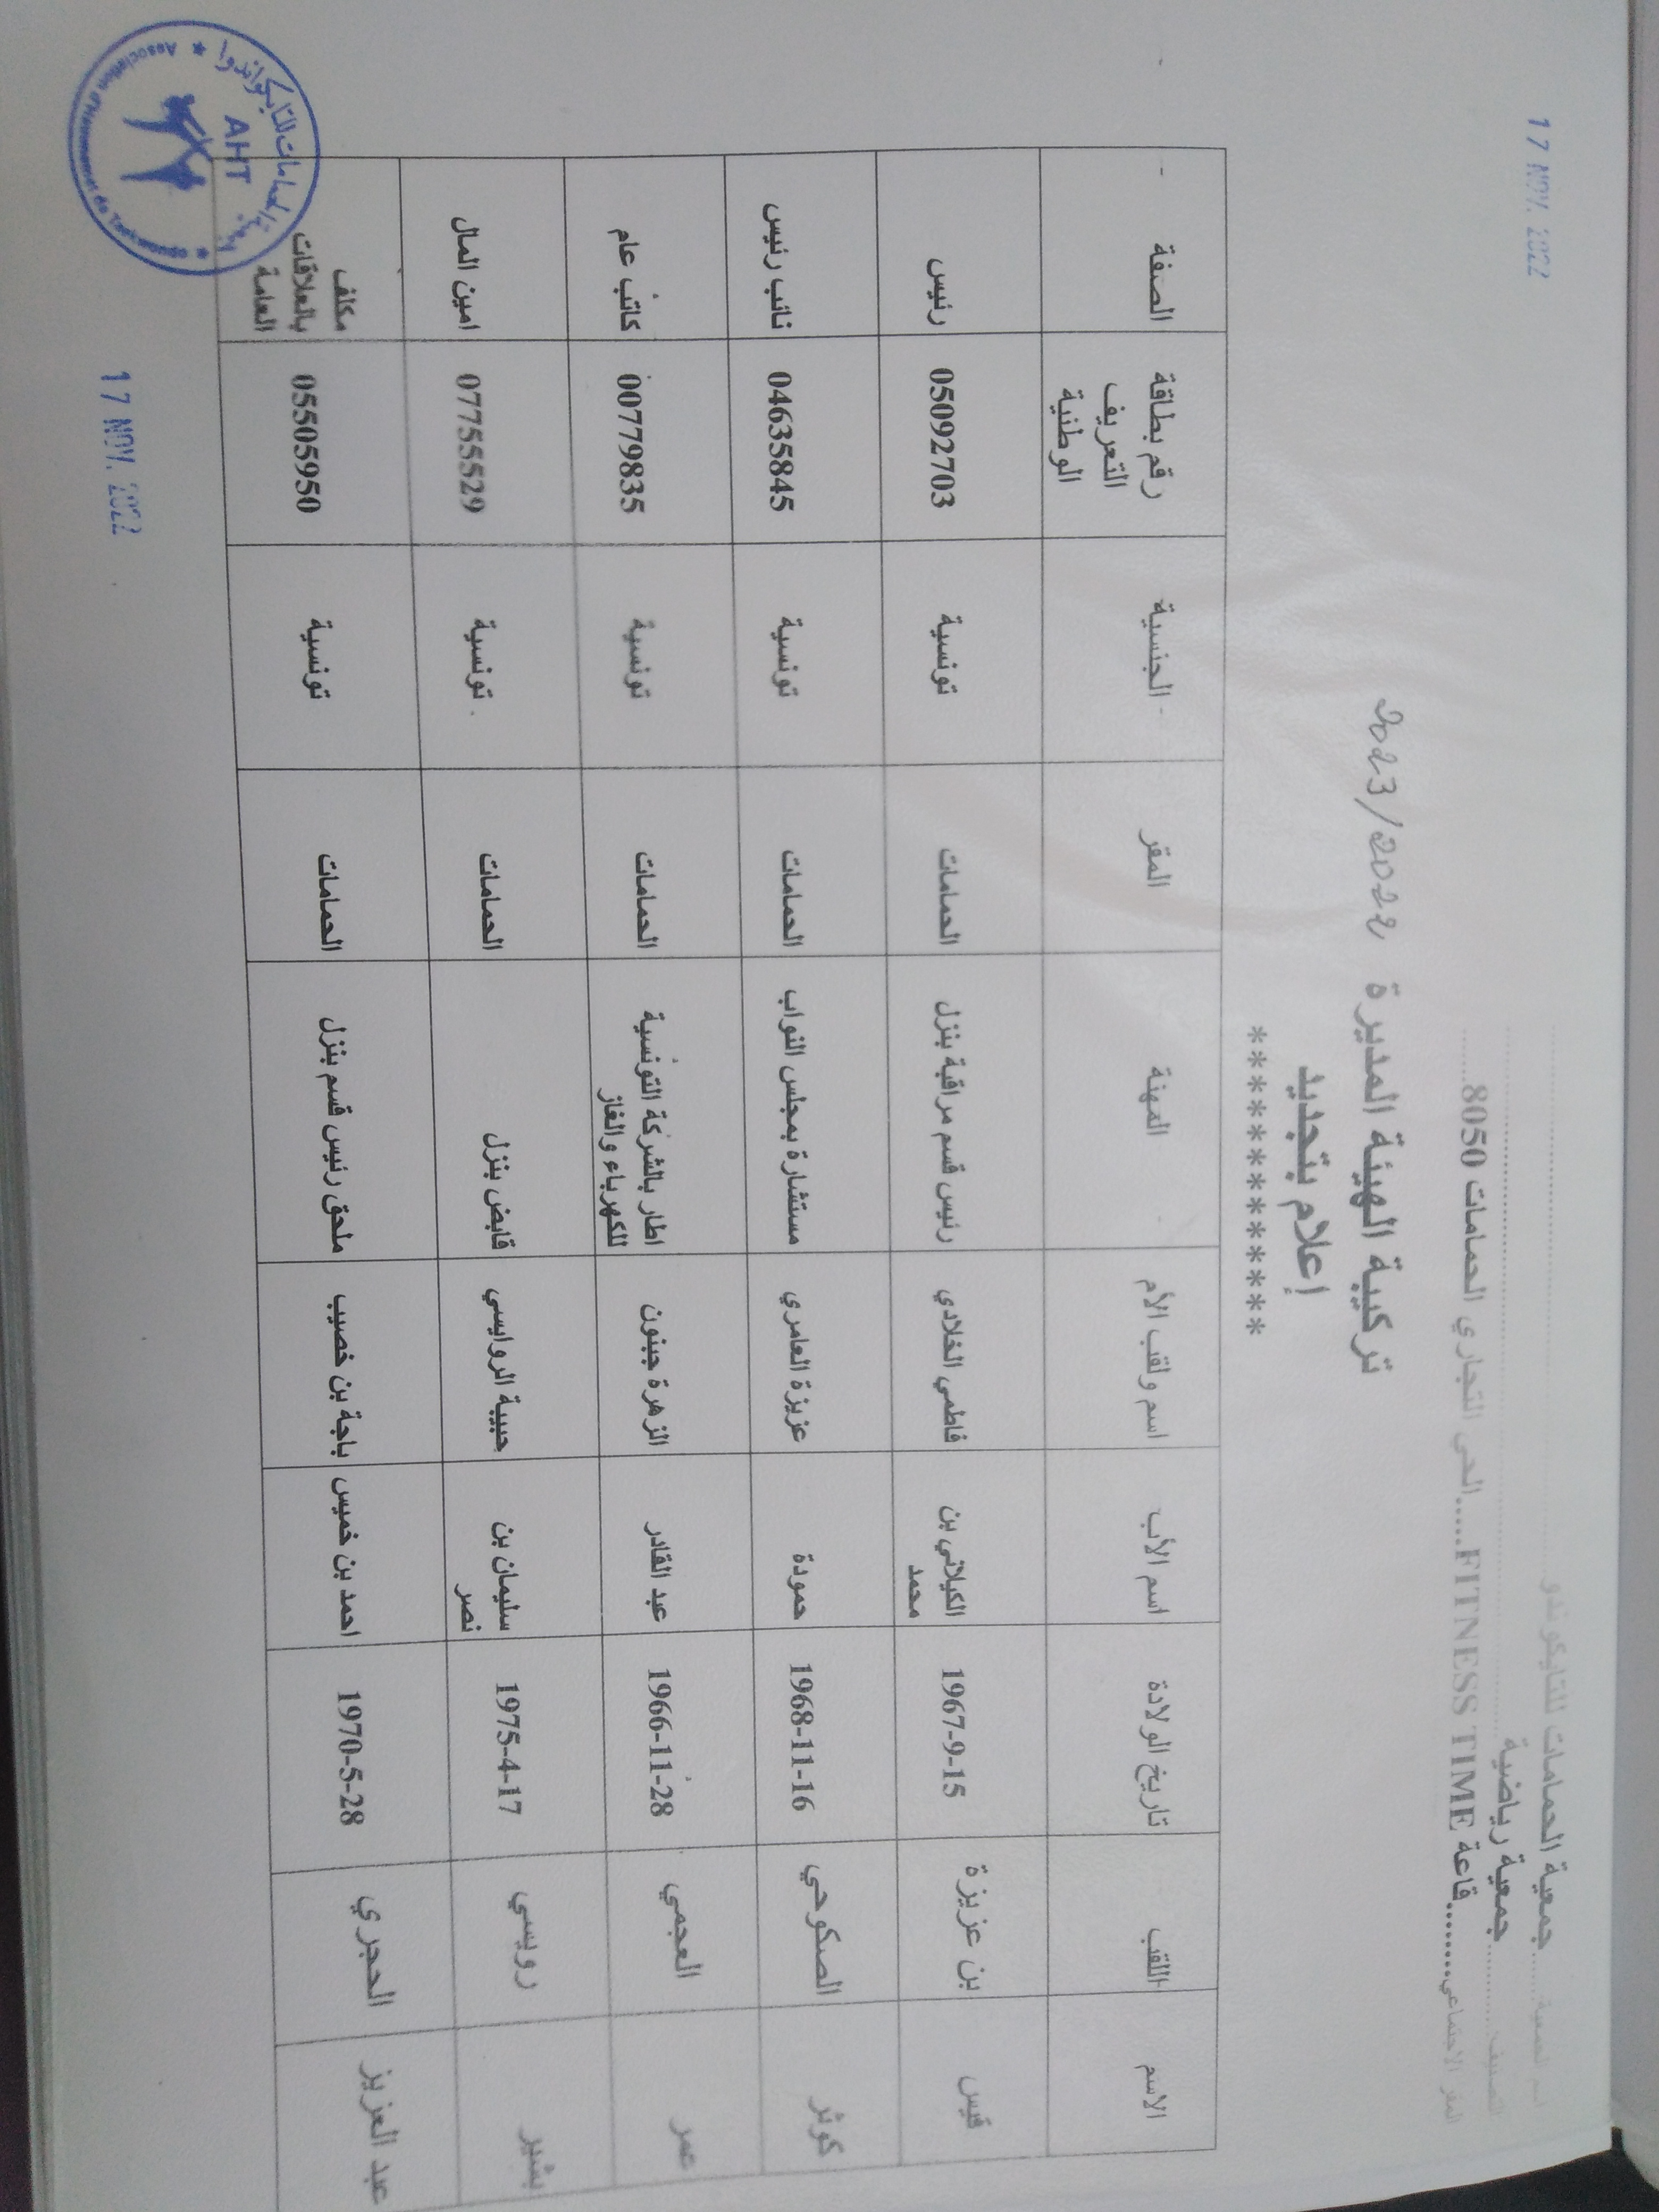 17 NOV. 2022
اسم الجمعية......جمعية الحمامات للتايكوندو
التصنيف............جمعية رياضية
المقر الاجتماعي.........قاعة FITNESS TIME.....الحي التجاري الحمامات 8050
تركيبة الهيئة المديرة 2023/2022
إعلام بتجديد
**************
الاسم اللقب تاريخ الولادة اسم الأب اسم ولقب الأم المهنة المقر الجنسية رقم بطاقة التعريف الوطنية الصفة
قيس بن عزيزة 1967-9-15 الكيلاني بن محمد فاطمي الخلادي رئيس قسم مراقبة بنزل الحمامات تونسية 05092703 رئيس
كوثر الصكوحي 1968-11-16 حمودة عزيزة العامري مستشارة بمجلس النواب الحمامات تونسية 04635845 نائب رئيس
عمر العجمي 1966-11-28 عبد القادر الزهرة جبنون اطار بالشركة التونسية للكهرباء والغاز الحمامات تونسية 00779835 كاتب عام
بشير رويسي 1975-4-17 سليمان بن نصر حبيبة الروايسي قابض بنزل الحمامات تونسية 07755529 امين المال
عبد العزيز الحجري 1970-5-28 احمد بن خميس باجة بن خصيب ملحق رئيس قسم بنزل الحمامات تونسية 05505950 مكلف بالعلاقات العامة
جمعية الحمامات للتايكواندوا
AHT
Association d'Hammamet de Taekwondo
17 NOV. 2022